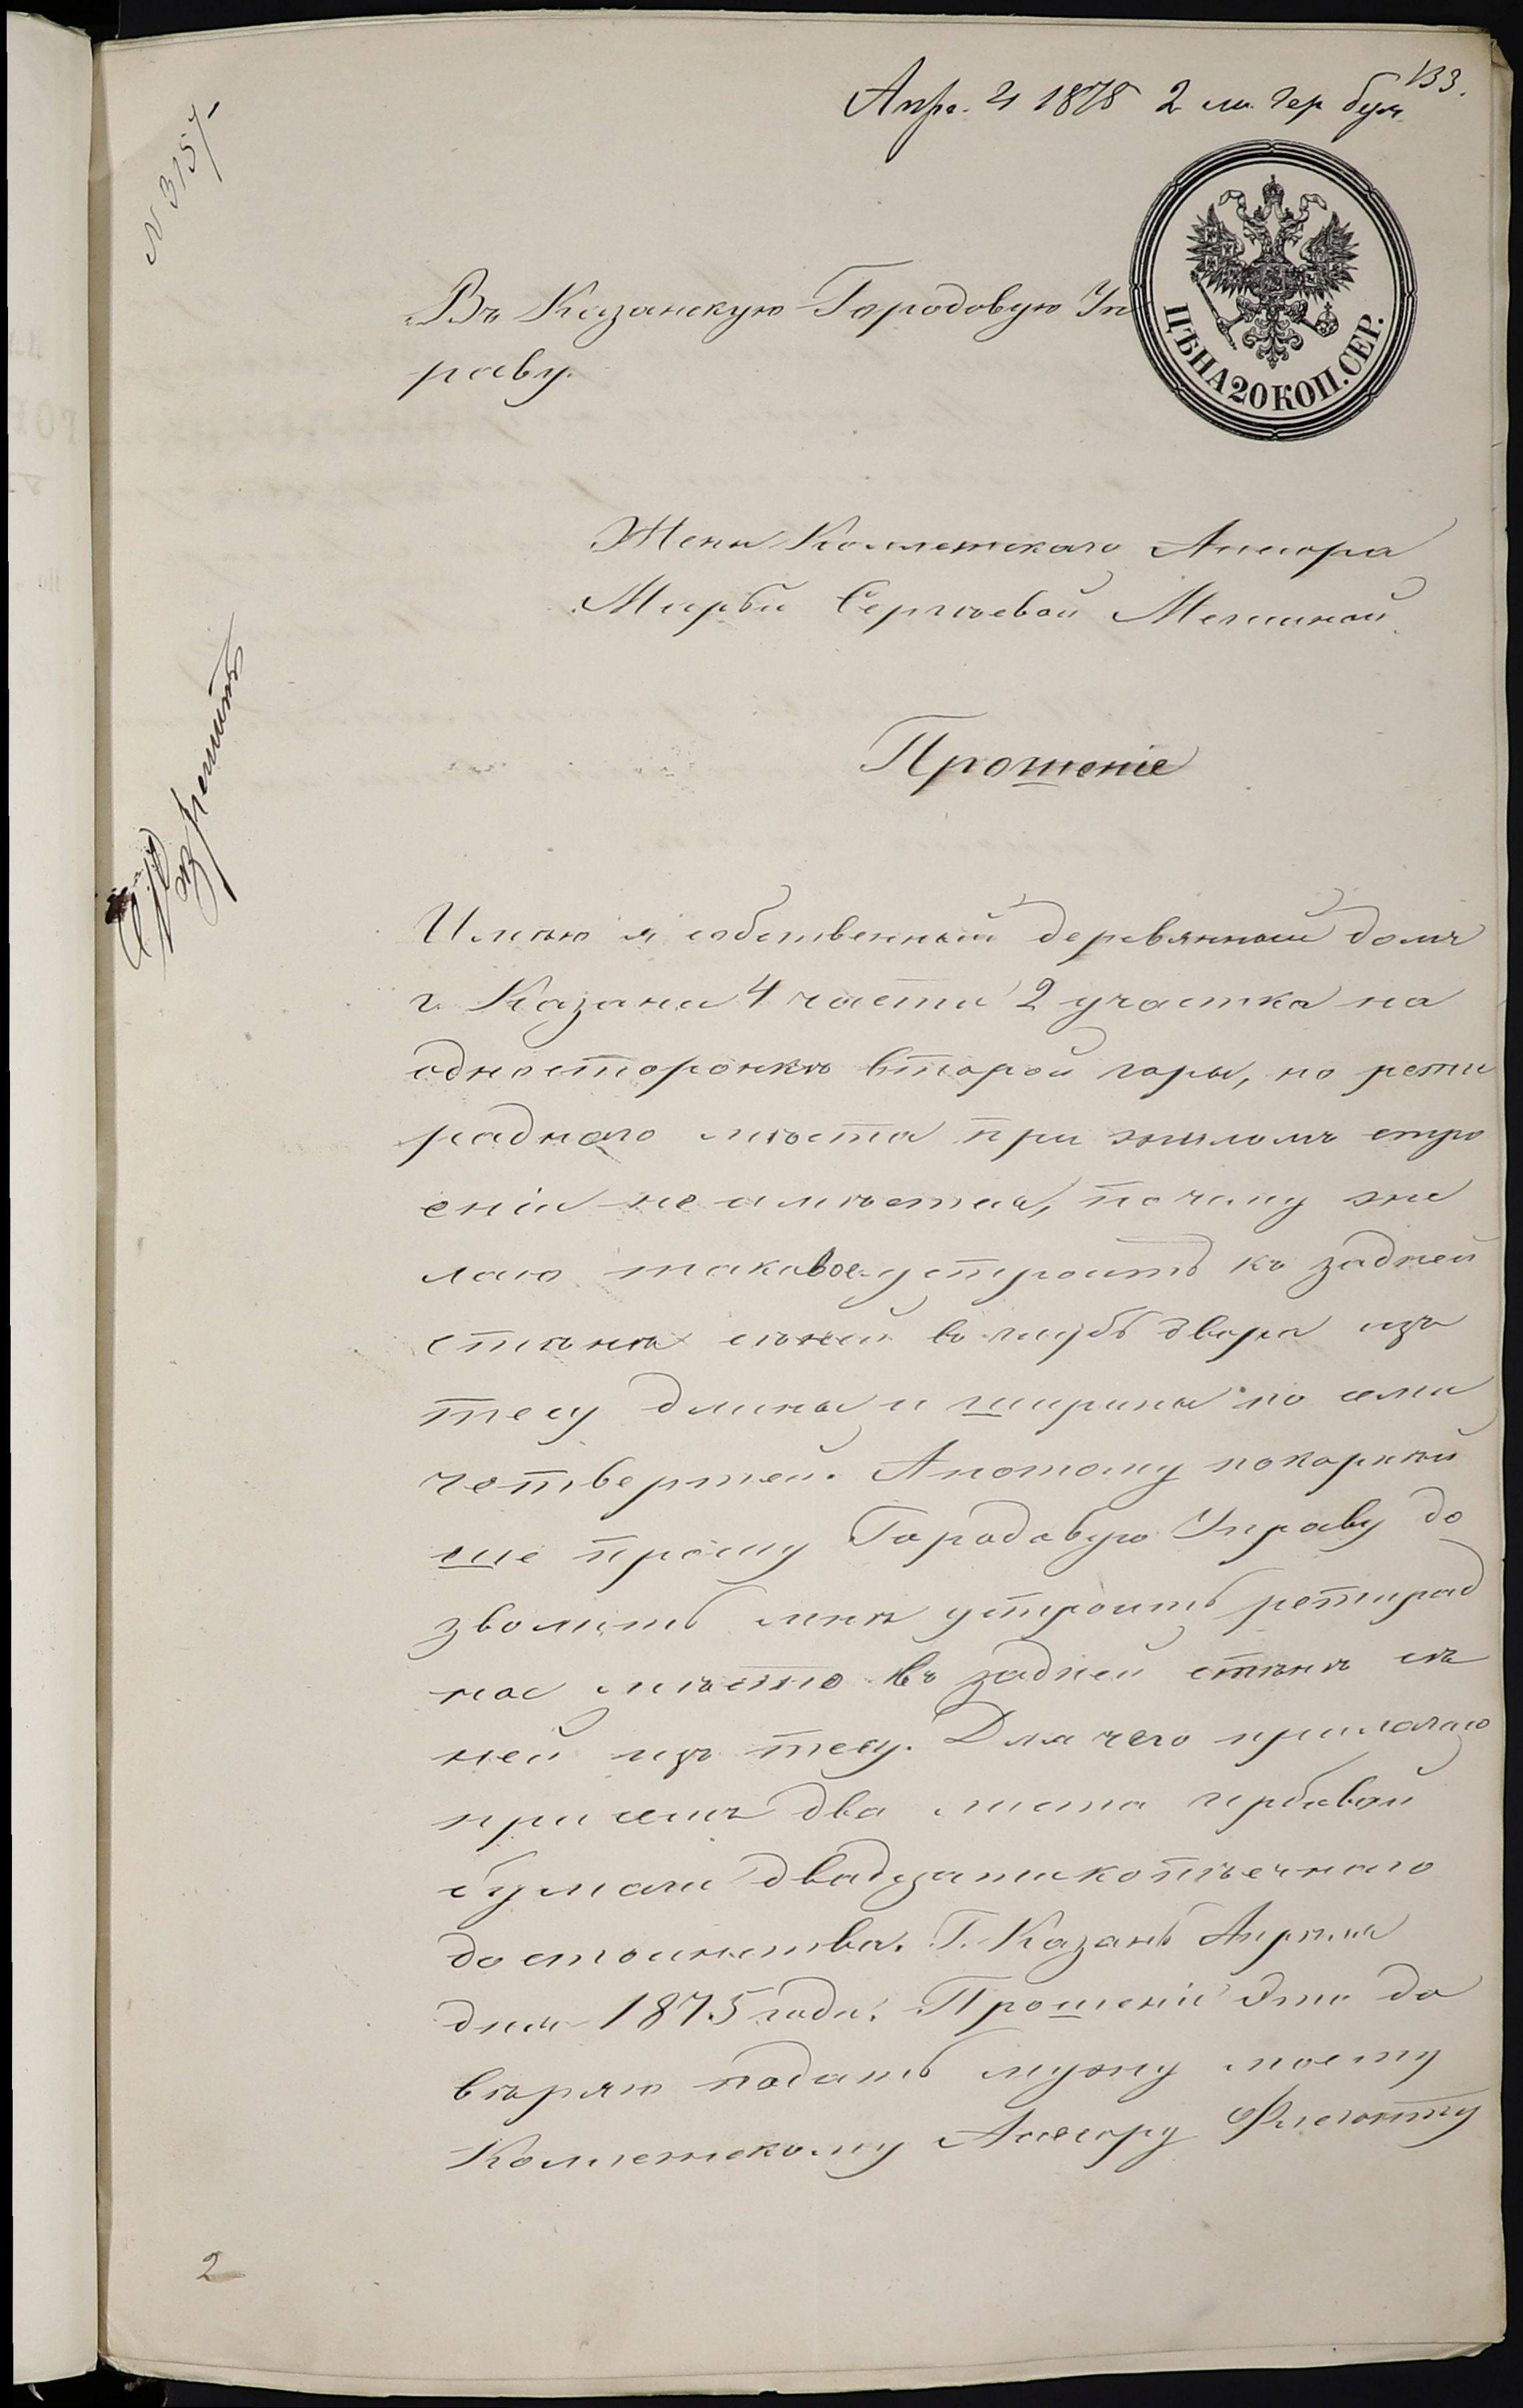 133.
Апр. 21 1875 2 ли. гер бум
№ 3157
ЦѢНА 20 КОП. СЕР.
Въ Казанскую Городовую Уп
раву.
Жены Коллежскаго Ассесора
Марьи Сергѣевой
Прошеніе
Разрешить
Имѣю я собственный деревянный домъ
г. Казани 4 части 2 участка на
одностороннѣ второй горы, но рети
раднаго мѣста при жиломъ стро
еніи не имѣется, почему же
лаю таковое устроить къ задней
стѣнѣ сѣней во глубь двора изъ
тесу длины и ширины по семи
четвертей. А потому покорнѣй
ше прошу Городовую Управу до
зволить мнѣ устроить ретирад
ное мѣсто въ задней стѣнѣ сѣ
ней изъ тесу. Для чего прилагаю
при семъ два листа гербовой
бумаги двадцатикопѣечнаго
достоинства. Г. Казань Апрѣля
дня 1875 года. Прошеніе это до
вѣряю подать мужу моему
Коллежскому Ассесору Флегонту
2